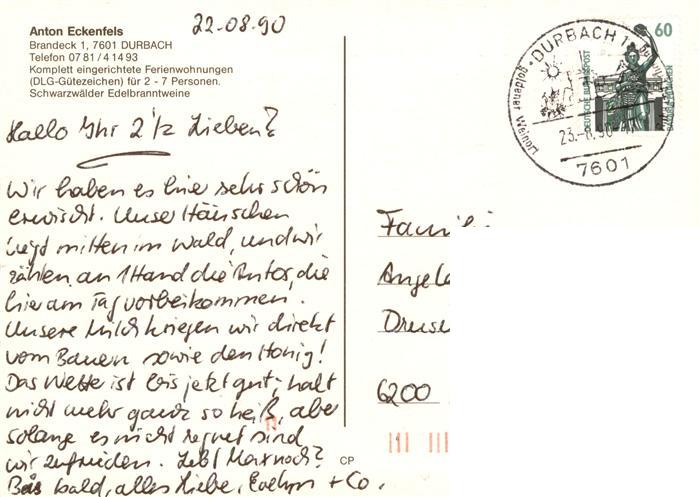 Anton Eckenfels
Brandeck 1, 7601 DURBACH
Telefon 07 81 / 4 14 93
Komplett eingerichtete Ferienwohnungen
(DLG-Gütezeichen) für 2 - 7 Personen.
Schwarzwälder Edelbranntweine
22-08.90
Hallo Ihr 2 1/2 Lieben?
Wir haben es hier sehr schön
erwischt. Unser Häuschen
liegt mitten im Wald, und wir
zählen an 1 Hand die Autos, die
hier am Tag vorbeikommen.
Unsere Milch kriegen wir direkt
vom Bauern sowie den Honig!
Das Wetter ist bis jetzt gut, halt
nicht mehr ganz so heiß, aber
solange es nicht regnet sind
wir zufrieden. Lebt Max noch?
Bis bald, alles Liebe, Evelyn + Co.
CP
DURBACH 1
goldener Weinort
23.-8.90
7601
60
DEUTSCHE BUNDESPOST
MÜNCHEN
Famili
Angel
Druse
6200